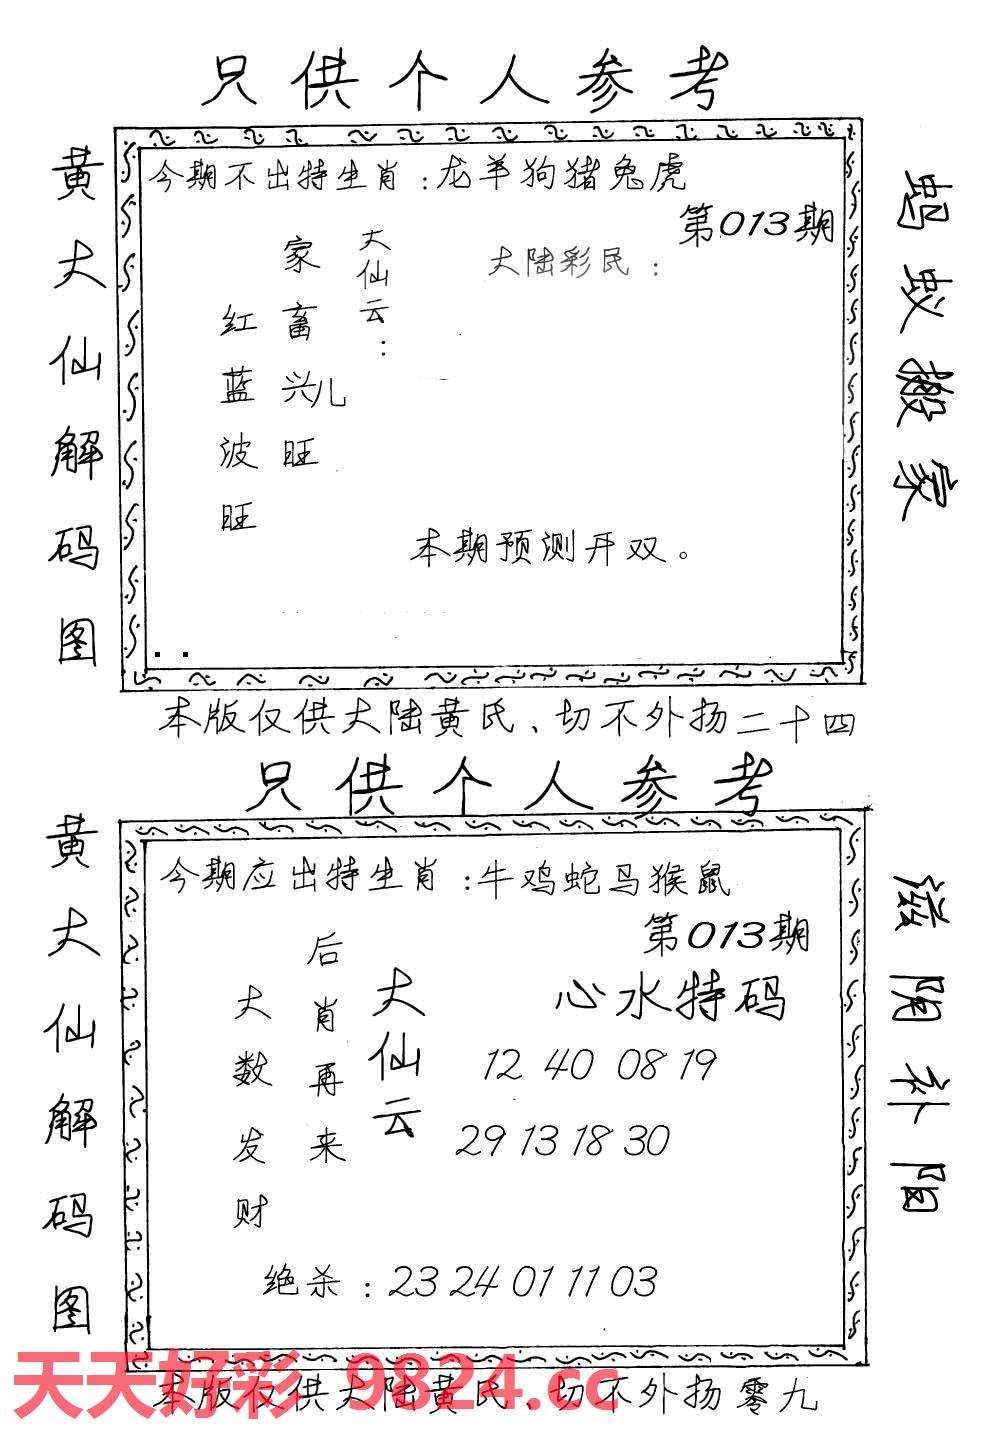 只供个人参考
黄大仙解码图
今期不出特生肖：龙羊狗猪兔虎
第013期
大陆彩民：
大仙云：
家畜兴旺
儿
红蓝波旺
本期预测开双。
蚂蚁搬家
本版仅供大陆黄氏、切不外扬二十四
只供个人参考
黄大仙解码图
今期应出特生肖：牛鸡蛇马猴鼠
第013期
心水特码
大仙云
后肖再来
大数发财
12 40 08 19
29 13 18 30
绝杀：23 24 01 11 03
滋阴补阳
本版仅供大陆黄氏、切不外扬零九
天天好彩 9824.cc